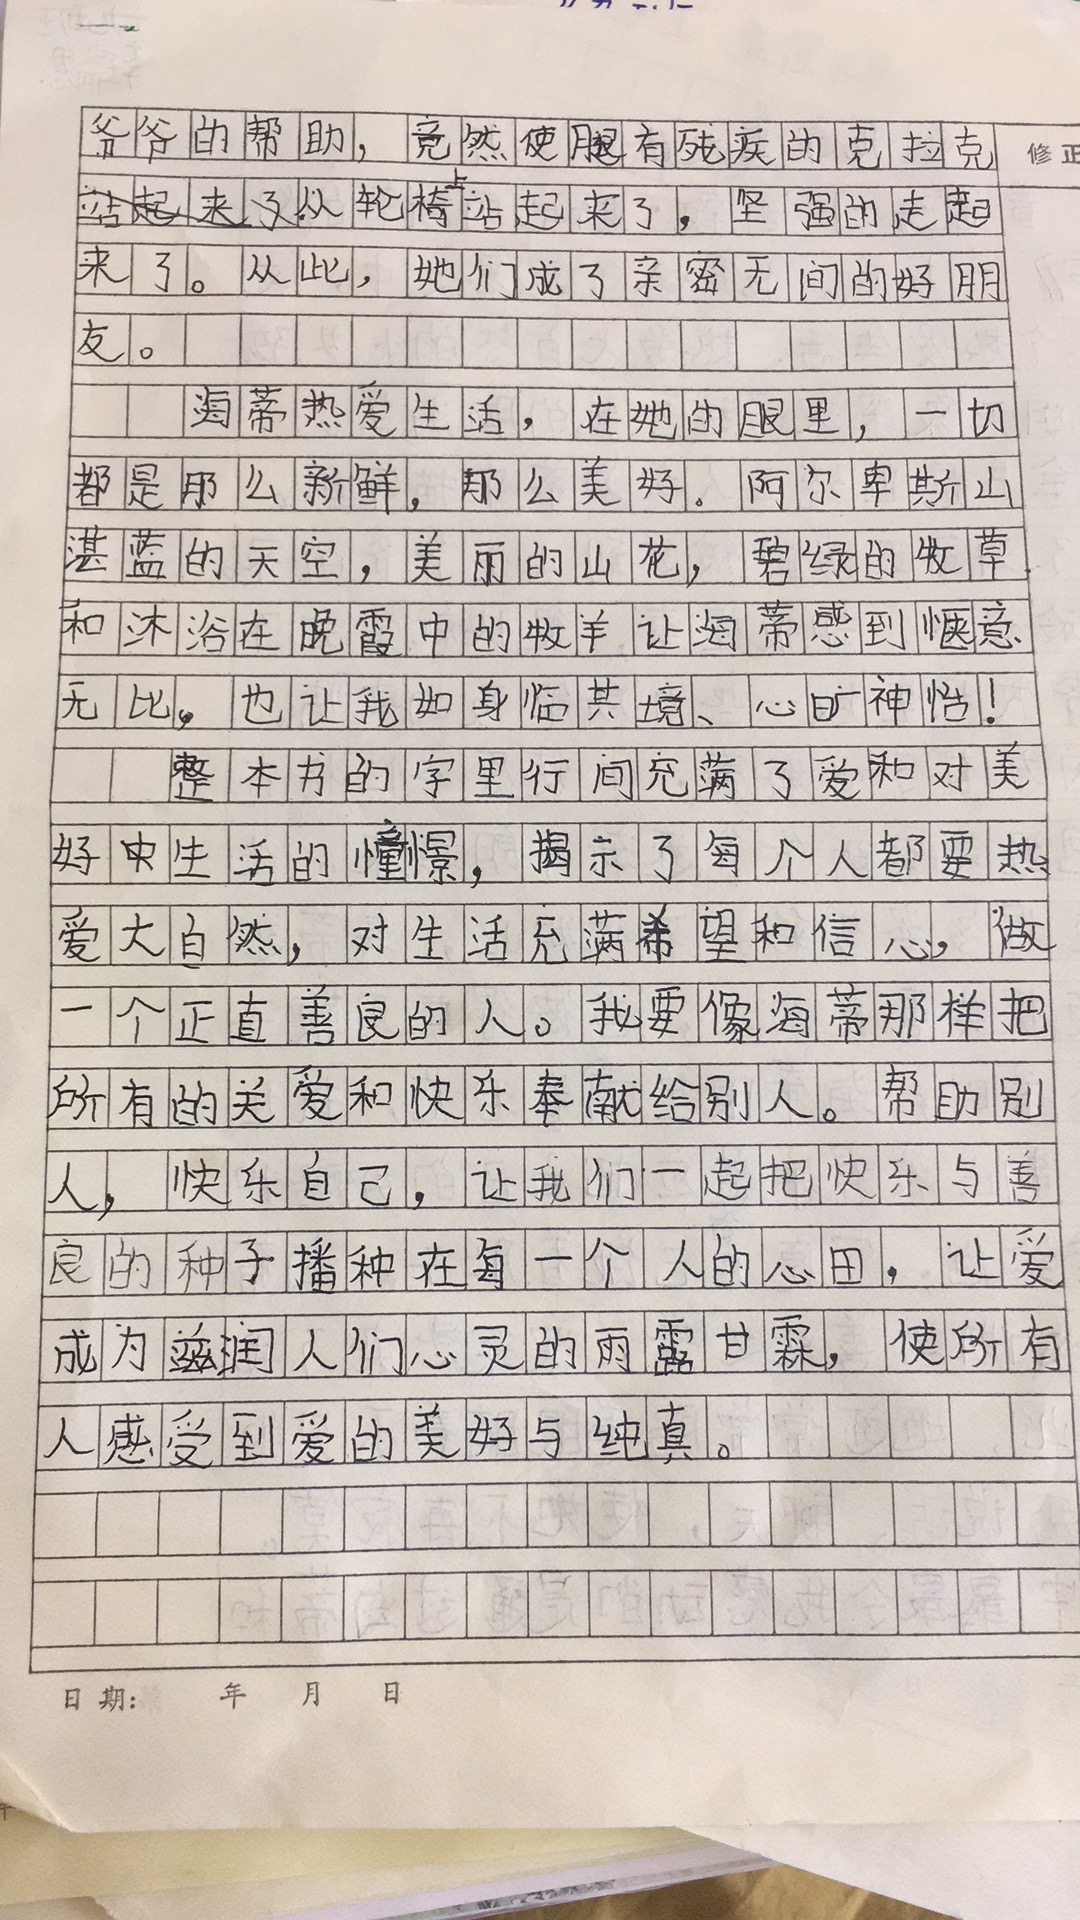 爷爷的帮助，竟然使腿有残疾的克拉克
修正
站起来了从轮椅上站起来了，坚强的走起
来了。从此，她们成了亲密无间的好朋
友。
海蒂热爱生活，在她的眼里，一切
都是那么新鲜，那么美好。阿尔卑斯山
湛蓝的天空，美丽的山花，碧绿的牧草
和沐浴在晚霞中的牧羊让海蒂感到惬意
无比。也让我如身临其境、心旷神怡！
整本书的字里行间充满了爱和对美
好中生活的憧憬，揭示了每个人都要热
爱大自然，对生活充满希望和信心，做
一个正直善良的人。我要像海蒂那样把
所有的关爱和快乐奉献给别人。帮助别
人，快乐自己，让我们一起把快乐与善
良的种子播种在每一个人的心田，让爱
成为滋润人们心灵的雨露甘霖，使所有
人感受到爱的美好与纯真。
日期： 年 月 日